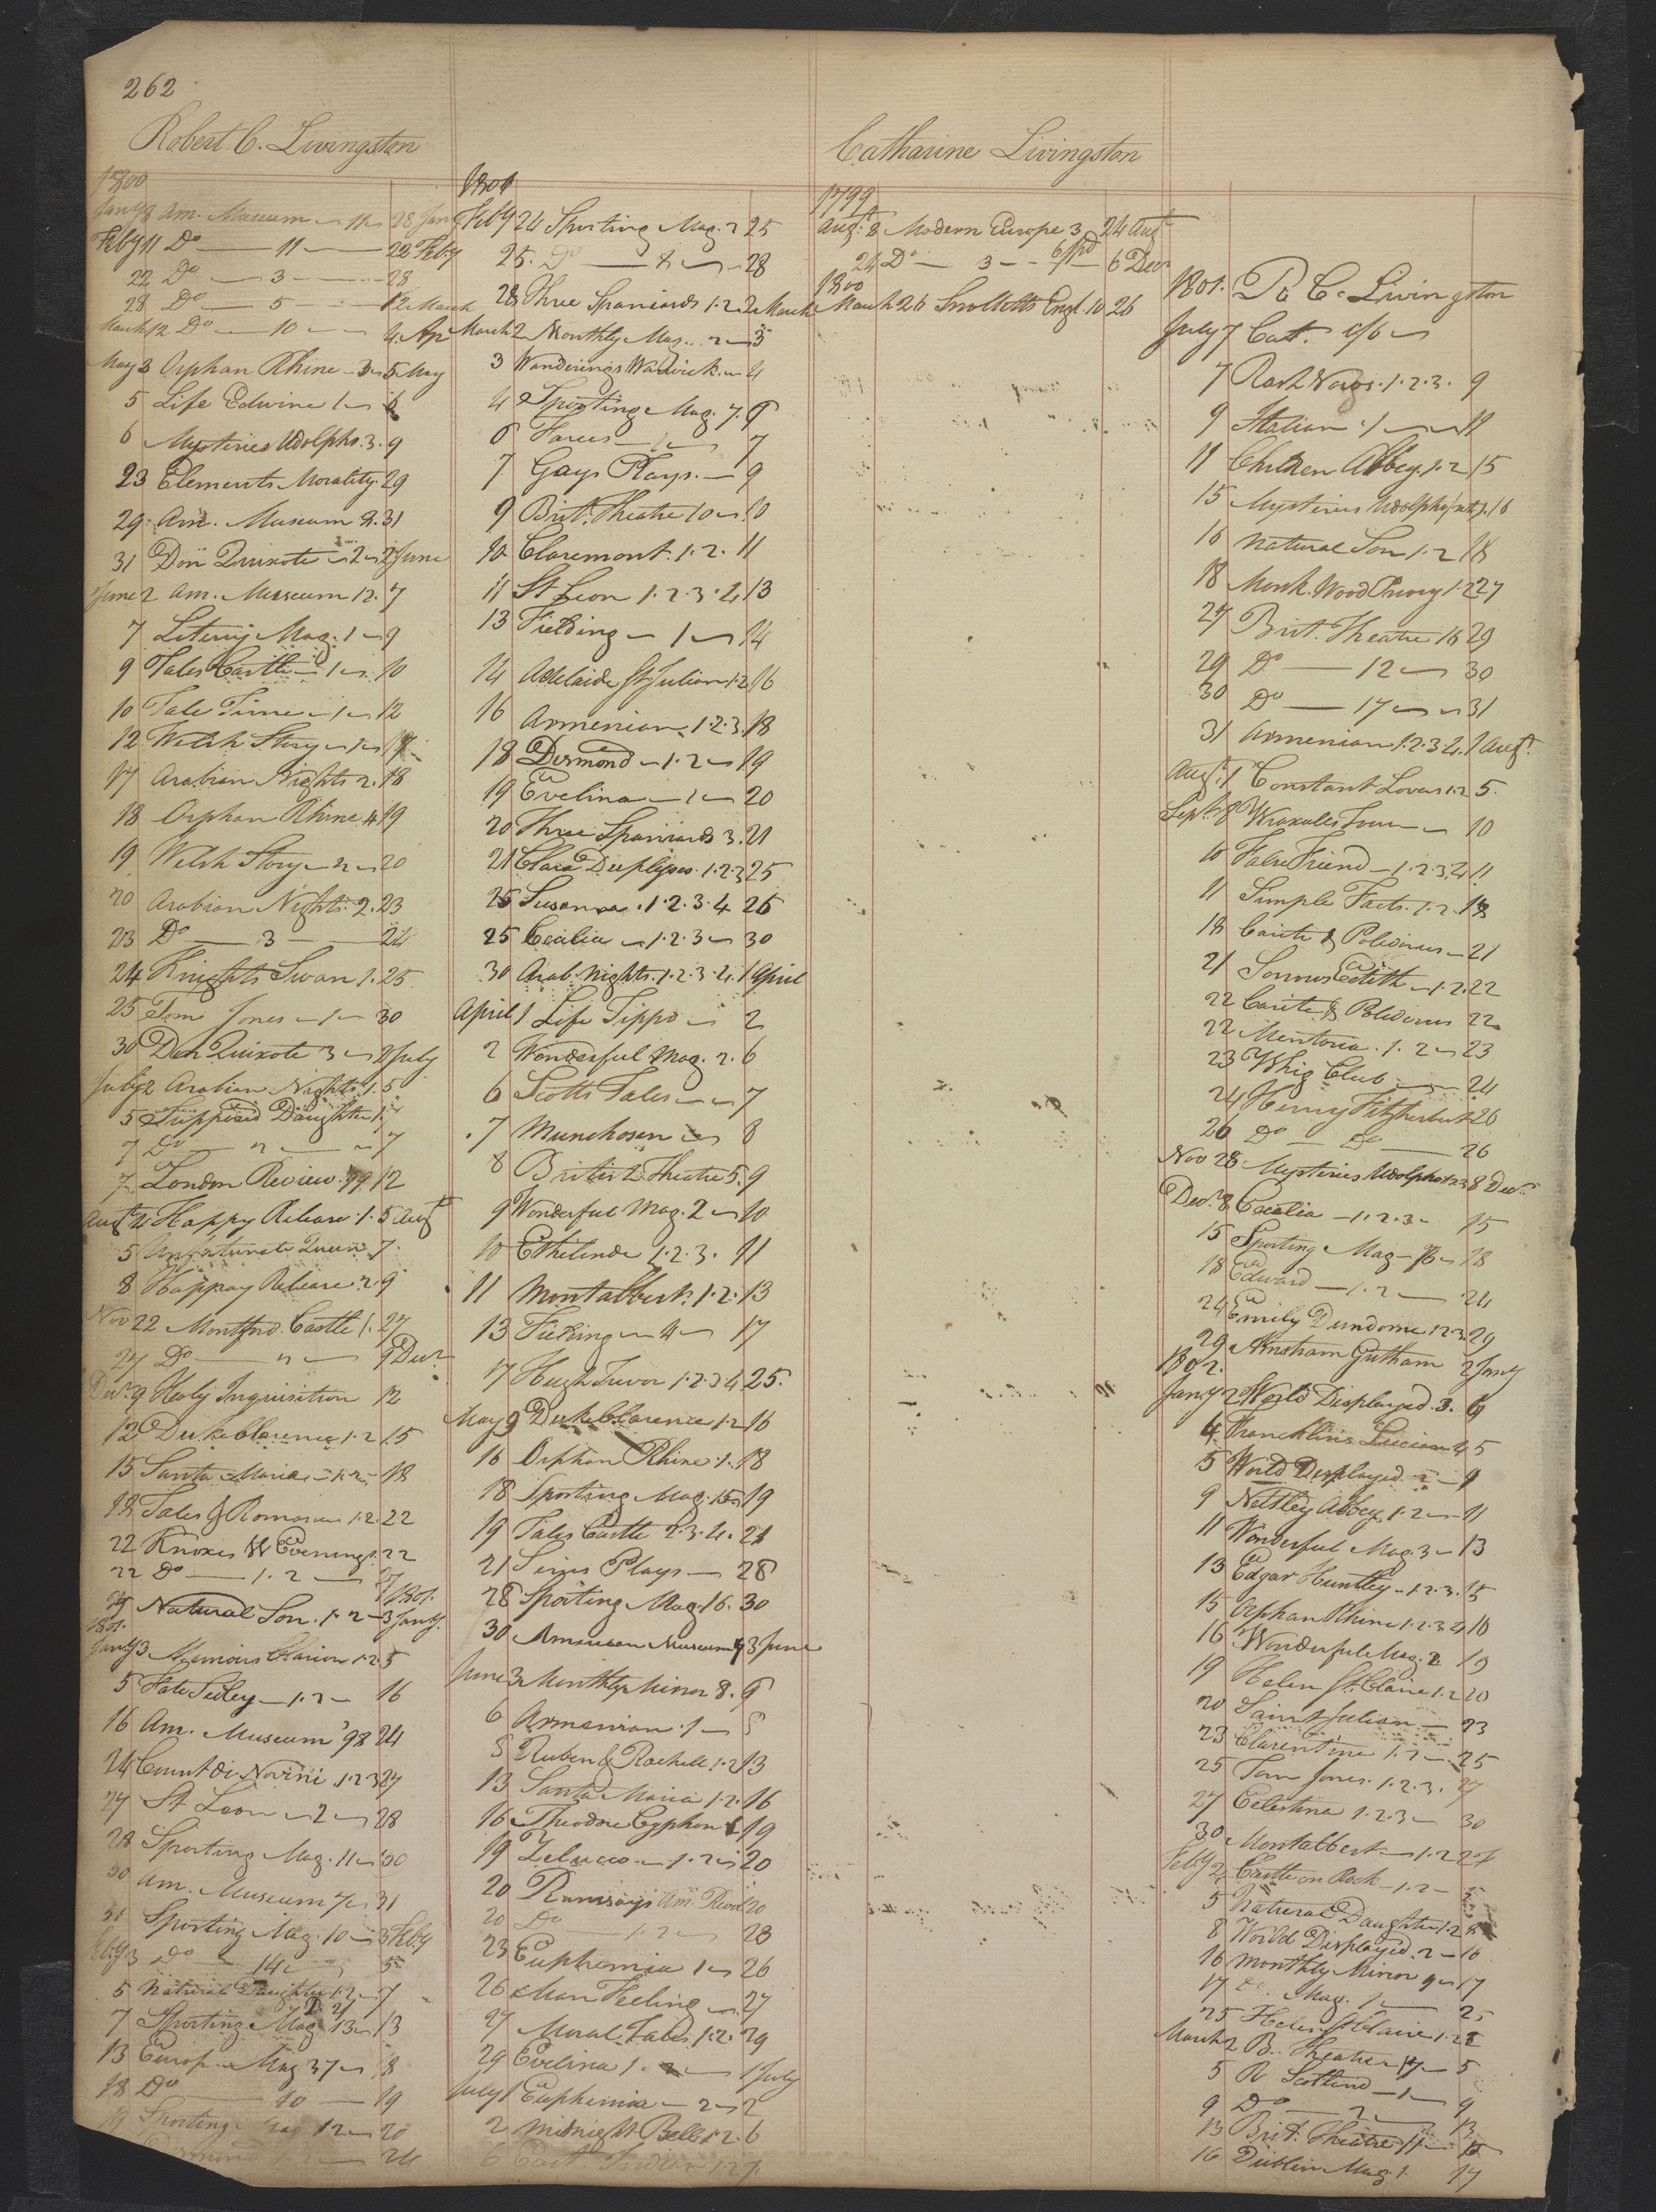 262
Robert C. Livingston
1800
Jany 8 Am. Museum 11 28 Jany
Feby 11 Do 11 22 Feby
22 Do 3 28
28 Do 5 12 March
March 12 Do 10 4 Ap
May 3 Orphan Rhine 3 5 May
5 Life Edwine 1 6
6 Mysteries Udolpho. 3. 9
23 Elements Morality. 29
29 Am. Museum 8. 31
31 Don Quixote 2 2 June
June 2 Am. Museum 12. 7
7 Literry Mag. 1 9
9 Tales Castle 1 10
10 Tale Times 1 12
12 Welsh Story 1 17
17 Arabian Nights 2. 18
18 Orphan Rhine 4 19
19 Welsh Story 2 20
20 Arabian Nights. 2. 23
23 Do 3 24
24 Knights Swan 1. 25
25 Tom Jones 1 30
30 Don Quixote 3 2 July
July 2 Arabian Nights 1. 5
5 Supposed Daughter 1. 7
7 Do 2 7
7 London Review. 99 12
Augt 4 Happy Release. 1. 5 Augt
5 Unfortunate Queen 7.
8 Happy Release. 2. 9
Nov 22 Montford Castle 1. 27
27 Do 2 9 Decr
Decr 9 Holy Inquisition 12
12 Duke Clarence 1. 2 15
15 Santa Maria 1. 2 18
18 Tales & Romances 1. 2. 22
22 Knoxes W Evenings. 22
22 Do 1. 2 27
1801.
27 Natural Son. 1. 2 3 Jany.
1801.
Jany 3 Memoirs Clarion 1. 2 5
5 Fate Sedley 1. 2 16
16 Am. Museum '98 24
24 Count di Novini 1. 2 3 27
27 St Leon 2 28
28 Sporting Mag. 11 30
30 Am. Museum 7 31
31 Sporting Mag. 10 3 Feby
Feby 3 Do 14 5
5 Natural Daughter 1. 2 7
7 Sporting Mag 13 13
13 Europ. Mag 37 18
18 Do 10 19
19 Sporting Mag 12 20
24
1801
Feby 24 Sporting Mag. 2 25
25. Do 8 28
28 Three Spaniards 1. 2. 2 March
March 2 Monthly Mag. 2 3
3 Wanderings Warwick. 4
4 Sporting Mag. 7. 6
6 Farces 1 7
7 Gays Plays. 9
9 Brit. Theatre 10 10
10 Claremont. 1. 2. 11
11 St Leon 1. 2. 3. 4 13
13 Fielding 1 14
14 Adelaide St Julian 1. 2 16
16 Armenian. 1. 2. 3. 18
18 Desmond 1. 2 19
19 Evelina 1 20
20 Three Spaniards 3. 21
21 Clara Duplesses. 1. 2. 3 25
25 Susanna. 1. 2. 3. 4 26
25 Cecilia 1. 2. 3 30
30 Arab. Nights. 1. 2. 3. 4. 1 April
April 1 Life Tippo 2
2 Wonderful Mag. 2. 6
6 Scotts Tales 7
7 Munchosen 8
8 British Theatre 5. 9
9 Wonderful Mag. 2 10
10 Ethelinde 1. 2. 3. 11
11 Montalbert. 1. 2. 13
13 Fielding 4 17
17 Hugh Trevor 1. 2. 3 4 25.
May 9 Duke Clarence 1. 2 16
16 Orphan Rhine. 1. 18
18 Sporting Mag. 15 19
19 Tales Castle 2. 3. 4. 21
21 Sirius Plays 28
28 Sporting Mag. 16. 30
30 American Museum 9 3 June
June 3 Monthly Mirror 8. 6
6 Armenian. 1 8
8 Ruben & Rachell. 1. 2 13
13 Santa Maria 1. 2. 16
16 Theodore Cyphon 19
19 Zelucco 1. 2 20
20 Ramsays Am. Revol 20
20 Do 1. 2 23
23 Euphemia 1 26
26 Man Feeling 27
27 Moral Tales 1. 2. 29
29 Evelina 1. 2 1 July
July 1 Euphemia 2 2
2 Midnight Bell 1. 2. 6
6 East Indian 1. 2 7
Catharine Livingston
1799
Augt. 8 Modern Europe 3 24 Augt
24 Do 3 6/ pd 6 Decr
1800
March 26 Smolletts Engl. 10 26
1801. Do C. Livingston
July 7 Cat. 1/6
7 Rash Vows. 1. 2. 3. 9
9 Italian. 1 11
11 Children Abbey. 1. 2 15
15 Mysteries Udolpho 16
16 Natural Son 1. 2 18
18 Monk. Wood Priory 1. 2 27
27 Brit. Theatre 16 29
29 Do 12 30
30 Do 17 31
31 Armenian 1. 2. 3 4. 1 Augt.
Augt. 1 Constant Lover 1. 2 5.
Septr 8 Wraxalls Tour 10
10 False Friend 1. 2. 3. 4 11
11 Simple Facts. 1. 2. 18
18 Carite & Polidorus 21
21 Sorrows Edith 1. 2. 22
22 Carite & Polidorus 22
22 Mentoria. 1. 2 23
23 Whig Club 24
24 Henry Fitzherbert 26
26 Do Do 26
Nov 28 Mysteries Udolpho 1 2 3 8 Decr
Decr. 8 Cecilia 1. 2. 3 15
15 Sporting Mag 16 18
18 Edward 1. 2 24
24 Emily Dundorne 1 2 3. 29
29 Amsham Gutham 2 Jany
1802.
Jany 2 World Displayed. 3. 4
4 Francklins Lucian 4 5
5 World Displayed. 2 9
9 Nettley Abbey. 1. 2 11
11 Wonderful Mag. 3 13
13 Edgar Huntley 1. 2. 3. 15
15 Orphan Rhine 1. 2. 3 4 16
16 Wonderful Mag. 2 19
19 Helen St. Claire 1. 2 20
20 Saint Julian 23
23 Clarentine 1. 2 25
25 Tom Jones. 1. 2. 3. 27
27 Celestina 1. 2. 3 30
30 Montalbert 1. 2
Feby 2 Castle on Rock 1. 2 5
5 Natural Daughter 1. 2 8
8 World Displayed. 2 16
16 Monthly Mirror 9 17
17 Do. Mag. 1 25
25 Helen St Claire 1. 2
March 2 B. Theatre 17 5
5 R Scotland 1 9
9 Do 2 13
13 Brit. Theatre 11 15
16 Dublin Mag. 1 17